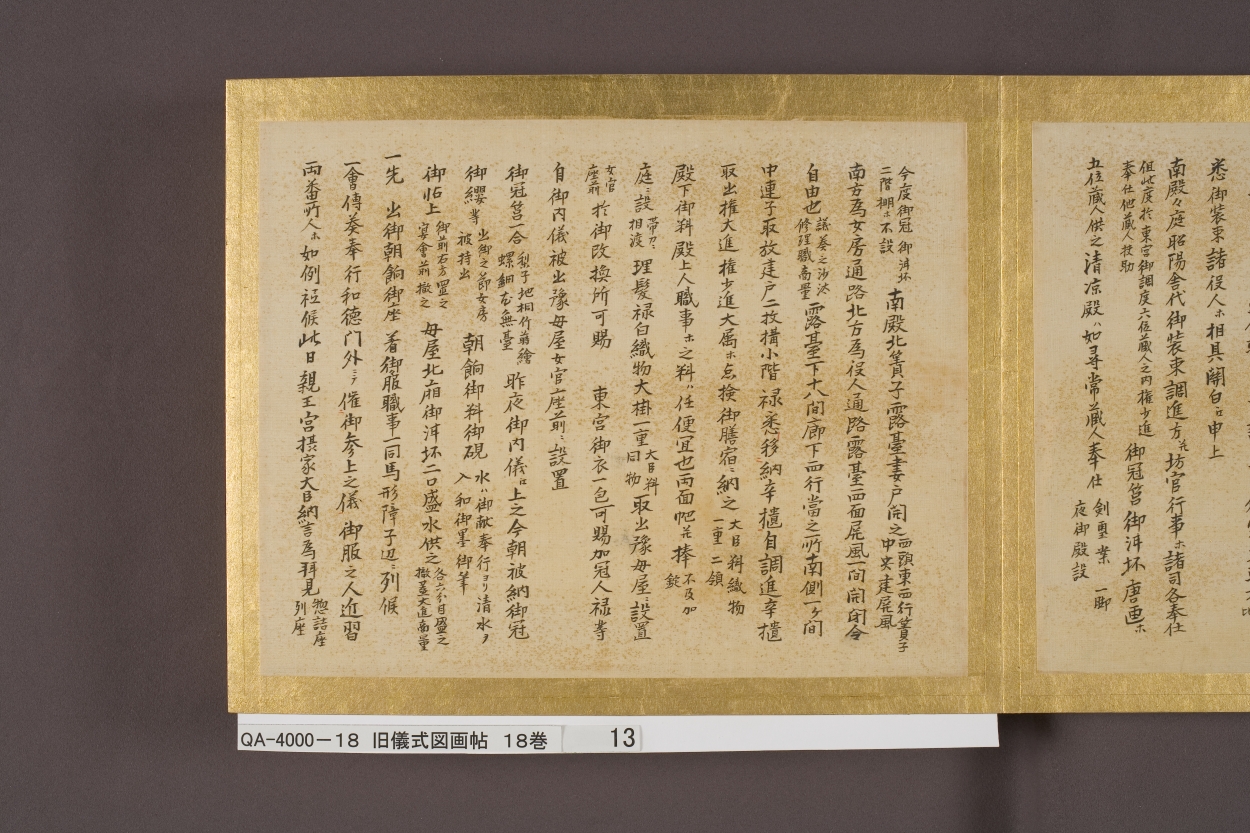 悉御装束諸役人ホ相具関白ニ申上
南殿々庭昭陽舎代御装束調進方并坊官行事ホ諸司各奉仕
但此度於東宮御調度六位蔵人之内権少進
奉仕他蔵人扶助
御冠筥御泔坏唐画ホ
五位蔵人供之清凉殿ハ如尋常蔵人奉仕
剣璽案一脚
夜御殿設
今度御冠御泔坏
二階棚ホ不設
南殿北簀子露臺妻戸開之
西頭東西行簀子
中央建屏風
南方為女房通路北方為役人通路露臺西面屏風一間開閉令
自由也
議奏之沙汰
修理職商量
露臺下十八間廊下西行當之所南側一ケ間
中連子取放建戸二枚構小階禄悉移納辛櫃自調進辛櫃
取出権大進権少進大属ホ点検御膳宿ニ納之
大臣料織物
一重二領
殿下御料殿上人職事ホ之料ハ任便宜也両面帊并捧
不及加
錠
庭ニ設
帯刀ニ
相渡
理髪禄白織物大褂一重
大臣料
同物
取出豫母屋ニ設置
女官
座前
於御改換所可賜
東宮御衣一包可賜加冠人禄等
自御内儀被出豫母屋女官座前ニ設置
御冠筥一合
梨子地桐竹鳳繪
螺鈿右無臺
昨夜御内儀ニ上之今朝被納御冠
御纓等
出御之節女房
被持出
朝餉御料御硯
水ハ御献奉行ヨリ清水ヲ
入和御墨御筆
御帖上
御前右方置之
宴會前撤之
母屋北廂御泔坏二口盛水供之
各六分目盛之
撤蓋大進商量
一先　出御朝餉御座　着御服職事一同馬形障子辺ニ列候
一會傳奏奉行和德門外ニテ催御参上之儀　御服之人近習
両番所人ホ如例祗候此日親王宮摂家大臣納言為拝見
惣詰座
列座
QA-4000-18　旧儀式図画帖　18巻　13